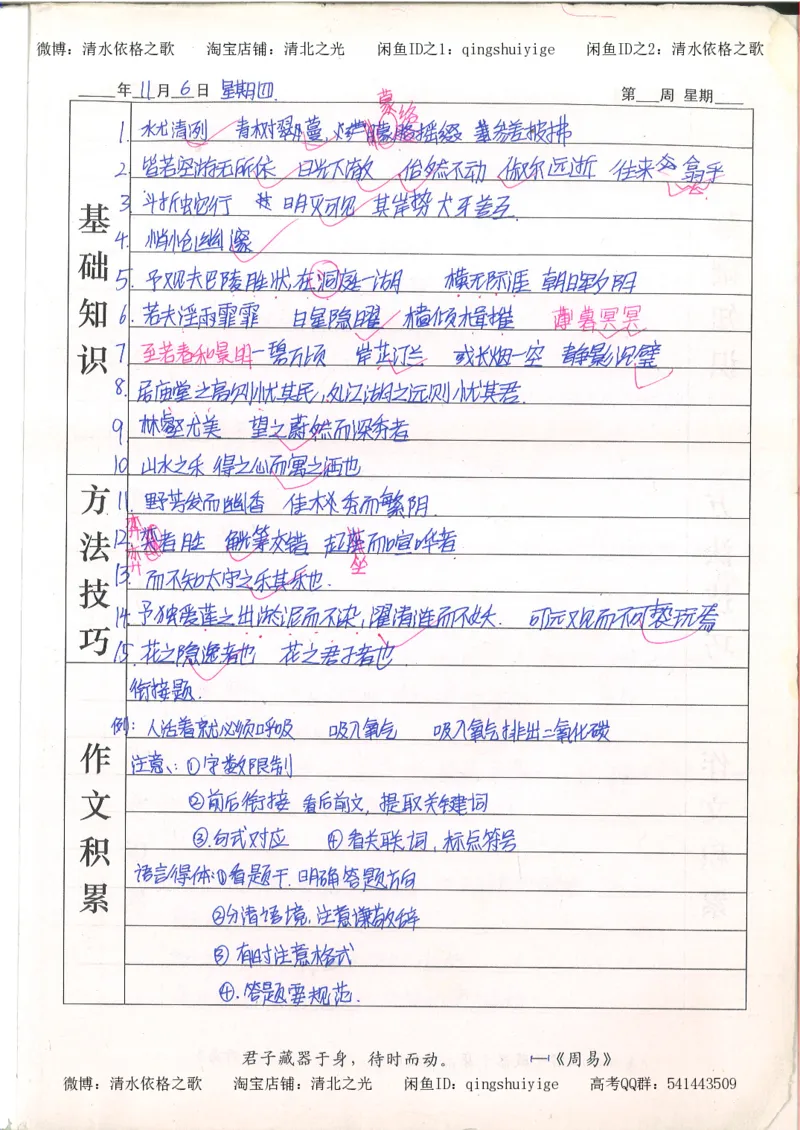 微博：清水依格之歌 淘宝店铺：清北之光 闲鱼ID之1：qingshuiyige 闲鱼ID之2：清水依格之歌
年 11月 6日 星期四 第 周 星期
蒙络
基础知识
1. 水尤清冽 青树翠蔓, 蒙络摇缀 参差披拂
2. 皆若空游无所依 日光下澈 佁然不动 俶尔远逝 往来翕乎
3. 斗折蛇行 明灭可见 其岸势犬牙差互
4. 悄怆幽邃
5. 予观夫巴陵胜状,在洞庭一湖 横无际涯 朝晖夕阴
6. 若夫淫雨霏霏 日星隐曜 樯倾楫摧 薄暮冥冥
7. 至若春和景明 一碧万顷 岸芷汀兰 或长烟一空 静影沉璧
8. 居庙堂之高则忧其民,处江湖之远则忧其君.
9. 林壑尤美 望之蔚然而深秀者
10. 山水之乐 得之心而寓之酒也
方法技巧
11. 野芳发而幽香 佳木秀而繁阴.
12. 弈者胜 觥筹交错 起座而喧哗者
坐
13. 而不知太守之乐其乐也.
14. 予独爱莲之出淤泥而不染,濯清涟而不妖. 可远观而不可亵玩焉
15. 花之隐逸者也 花之君子者也
作文积累
衔接题.
例: 人活着就必须呼吸 吸入氧气 吸入氧气排出二氧化碳
注意: ①字数限制
②前后衔接 看后前文, 提取关键词
③.句式对应 ④看关联词, 标点符号
语言得体:①看题干.明确答题方向
②分清语境.注意谦敬辞
③ 有时注意格式
④. 答题要规范.
君子藏器于身，待时而动。 —《周易》
微博：清水依格之歌 淘宝店铺：清北之光 闲鱼ID：qingshuiyige 高考QQ群：541443509